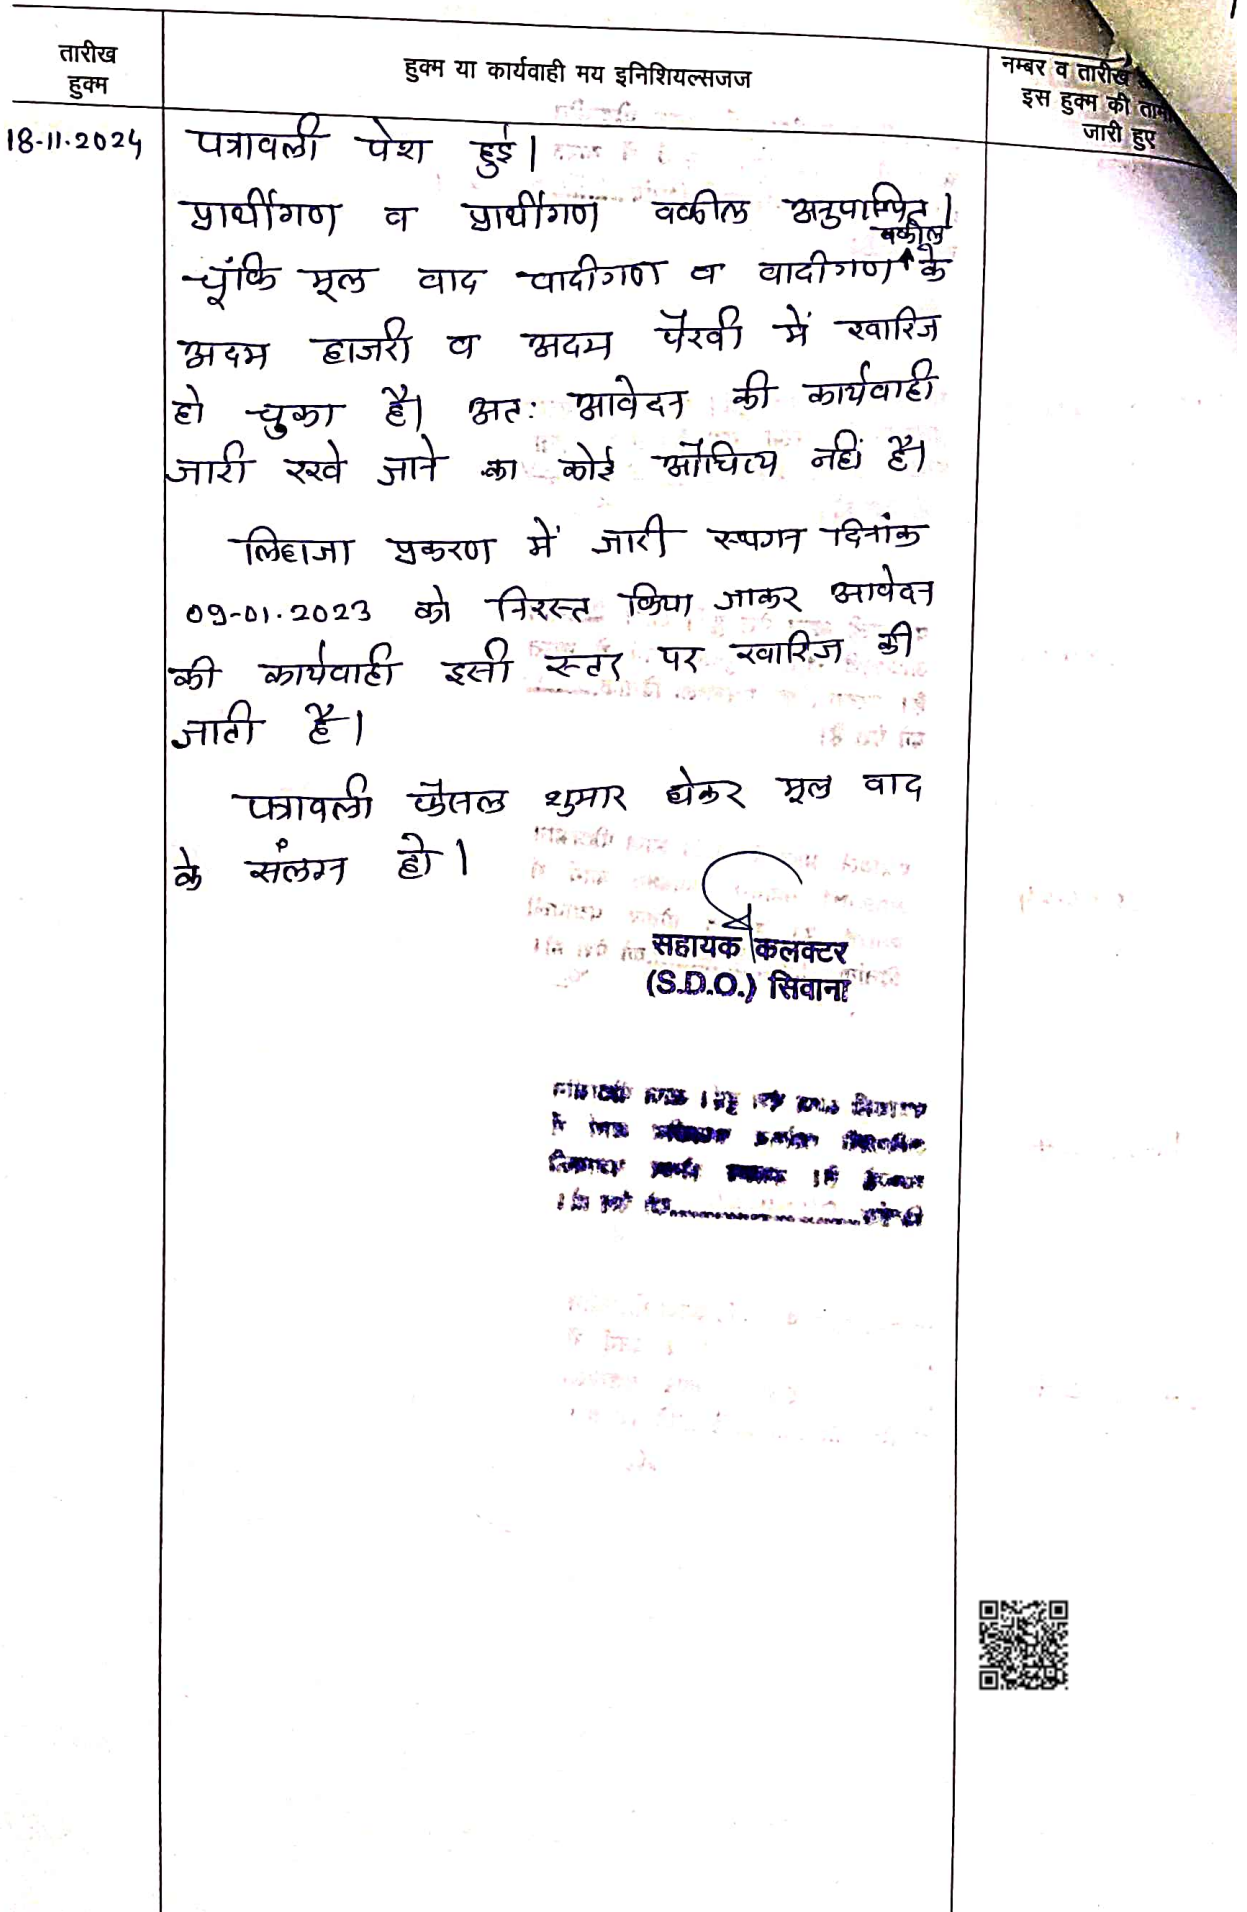 तारीख
हुक्म
हुक्म या कार्यवाही मय इनिशियल्सजज
नम्बर व तारीख
इस हुक्म की
जारी हुए
18-11-2024
पत्रावली पेश हुई।
प्रार्थीगण व प्रार्थीगण वकील अनुपस्थित।
वकील
चूंकि मूल वाद वादीगण व वादीगण के
अदम हाजरी व अदम पैरवी में खारिज
हो चुका है। अतः आवेदन की कार्यवाही
जारी रखे जाने का कोई औचित्य नहीं है।
लिहाजा प्रकरण में जारी स्थगन दिनांक
09-01-2023 को निरस्त किया जाकर आवेदन
की कार्यवाही इसी स्तर पर खारिज की
जाती है।
पत्रावली फैसल शुमार होकर मूल वाद
के संलग्न हो।
सहायक कलक्टर
(S.D.O.) सिवाना